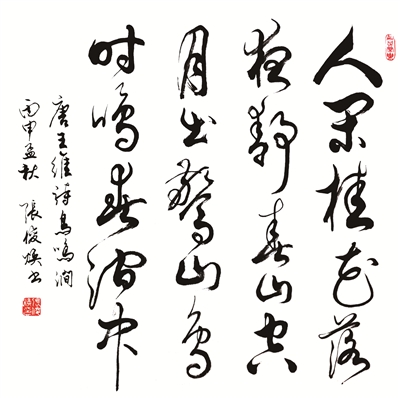 人闲桂花落
夜静春山空
月出惊山鸟
时鸣春涧中
唐王维诗鸟鸣涧
丙申孟秋 张俊焕书